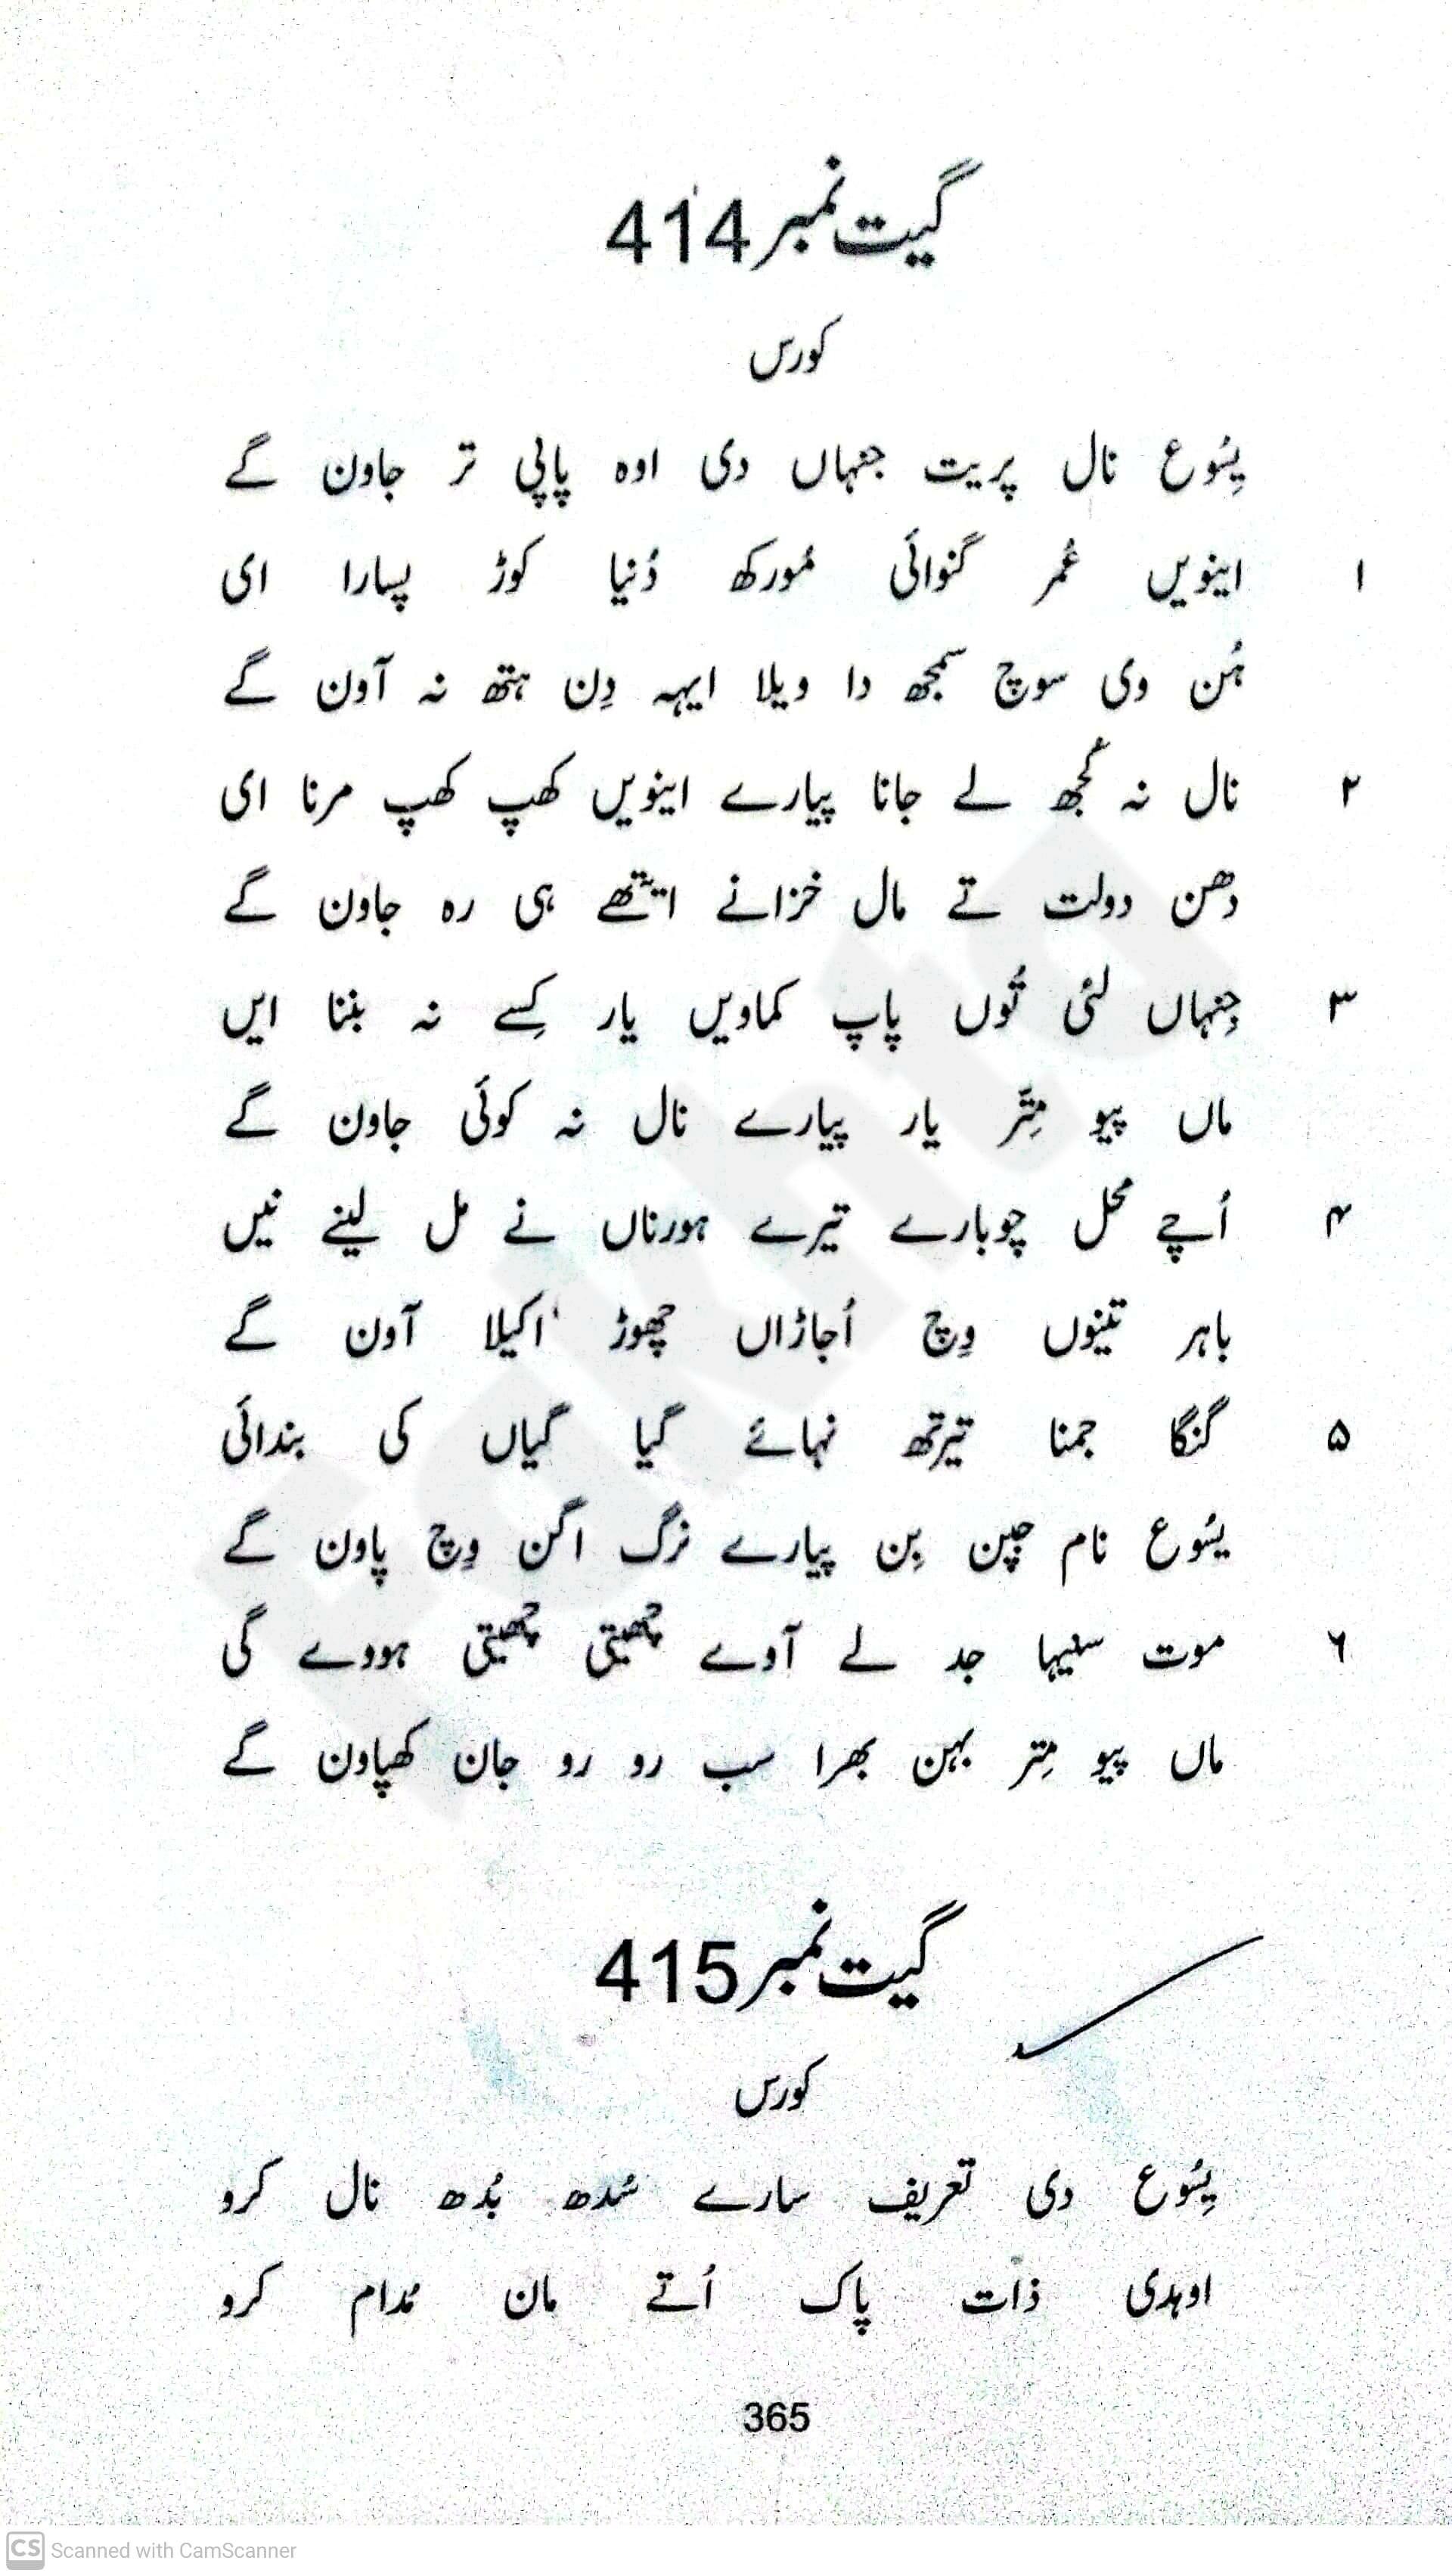 گیت نمبر 414
کورس
یِسُوع نال پریت جنہاں دی اوہ پاپی تر جاون گے
۱ اینویں عُمر گنوائی مُورکھ دُنیا کوڑ پسارا ای
ہُن وی سوچ سمجھ دا ویلا ایہہ دِن ہتھ نہ آون گے
۲ نال نہ کُجھ لے جانا پیارے اینویں کھپ کھپ مرنا ای
دھن دولت تے مال خزانے ایتھے ہی رہ جاون گے
۳ جِنہاں لئی تُوں پاپ کماویں یار کِسے نہ بننا ایں
ماں پیو مِتَّر یار پیارے نال نہ کوئی جاون گے
۴ اُچے محل چوبارے تیرے ہورناں نے مل لینے نیں
باہر تینوں وِچ اُجاڑاں چھوڑ اکیلا آون گے
۵ گنگا جمنا تیرتھ نہائے گیا گیاں کی بندائی
یسُوع نام جپن بِن پیارے نرگ اگن وِچ پاون گے
۶ موت سنیہا جد لے آوے چھیتی چھیتی ہووے گی
ماں پیو مِتر بہن بھرا سب رو رو جان کھپاون گے
گیت نمبر 415
کورس
یِسُوع دی تعریف سارے سُدھ بُدھ نال کرو
اوہدی ذات پاک اُتے مان مُدام کرو
365
CS Scanned with CamScanner
Fakhta